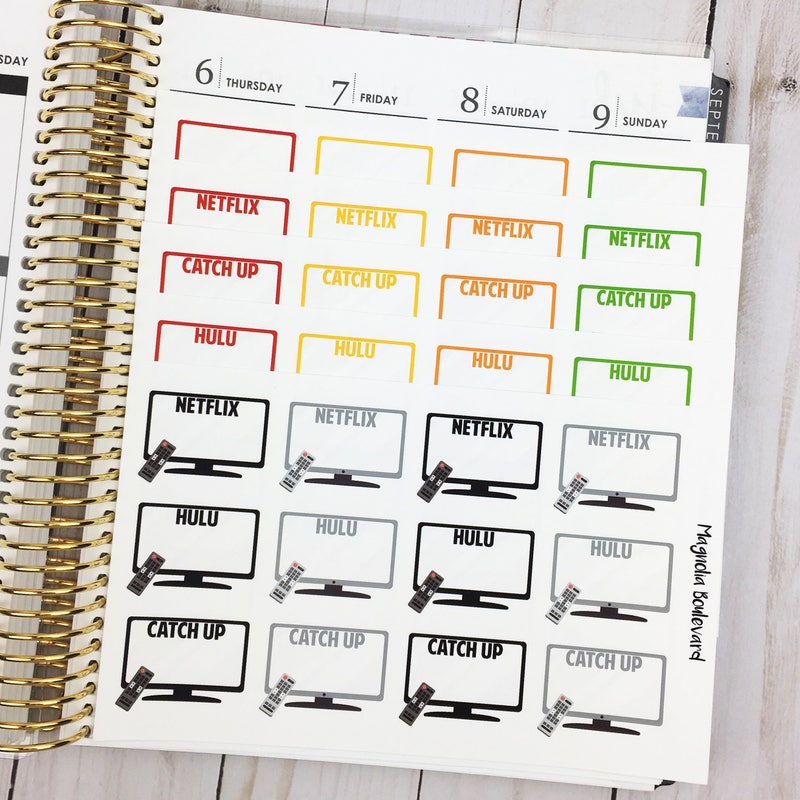 SDAY
6 THURSDAY
7 FRIDAY
8 SATURDAY
9 SUNDAY
SEPTE
NETFLIX NETFLIX NETFLIX NETFLIX
CATCH UP CATCH UP CATCH UP CATCH UP
HULU HULU HULU HULU
NETFLIX NETFLIX NETFLIX NETFLIX
HULU HULU HULU HULU
CATCH UP CATCH UP CATCH UP CATCH UP
Magnolia Boulevard